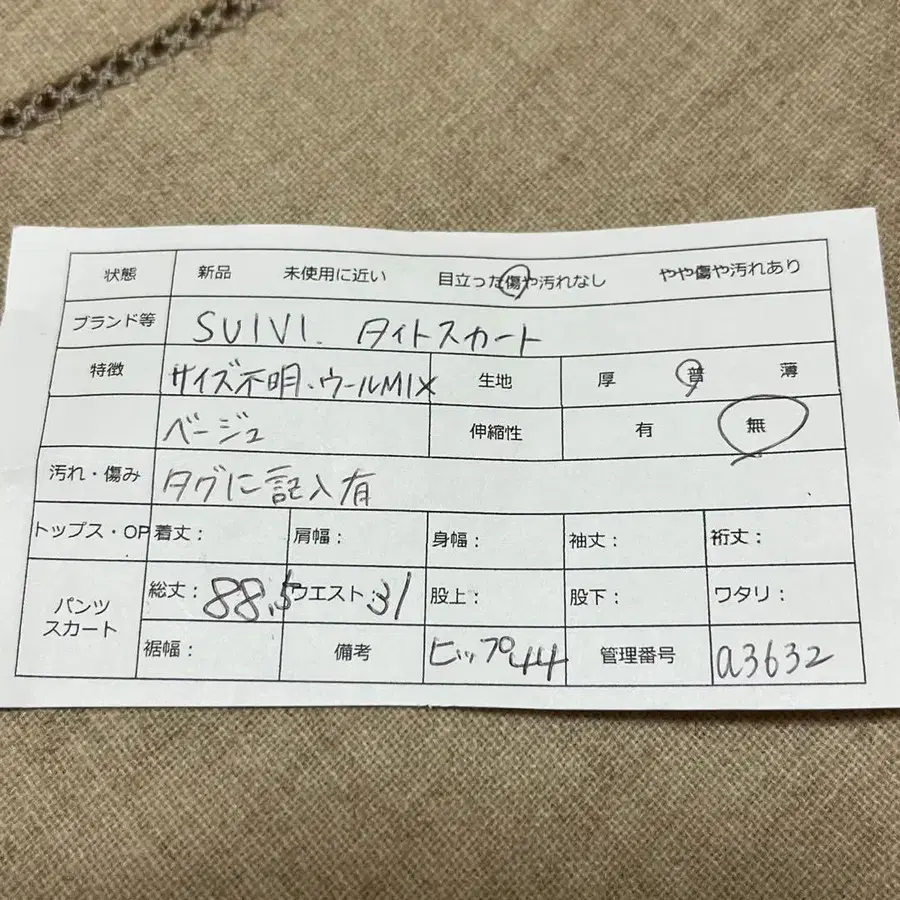 状態 新品 未使用に近い 目立った傷や汚れなし やや傷や汚れあり
ブランド等 SUIVI. タイトスカート
特徴 サイズ不明・ウールMIX 生地 厚 普 薄
ベージュ 伸縮性 有 無
汚れ・傷み タグに記入有
トップス・OP 着丈: 肩幅: 身幅: 袖丈: 裄丈:
パンツ スカート 総丈: 88.5 ウエスト: 31 股上: 股下: ワタリ:
裾幅: 備考 ヒップ44 管理番号 a3632